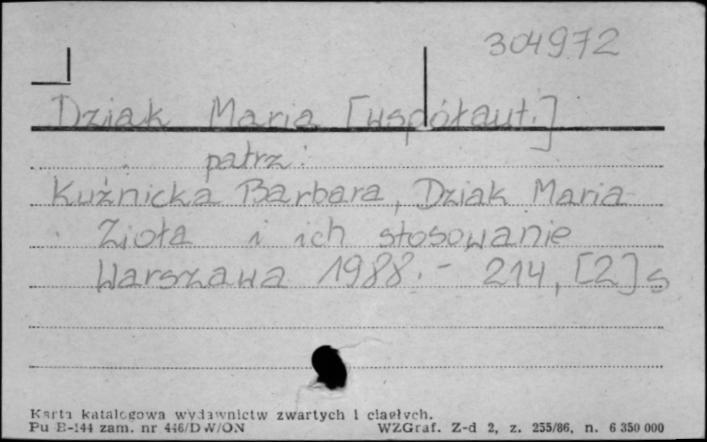 304972
Dziak Maria [współaut.]
patrz:
Kuźnicka Barbara, Dziak Maria
Zioła i ich stosowanie
Warszawa 1988.- 214, [2] s
Karta katalogowa wydawnictw zwartych i ciągłych.
Pu B-144 zam. nr 446/DW/ON WZGraf. Z-d 2, z. 255/86, n. 6 350 000